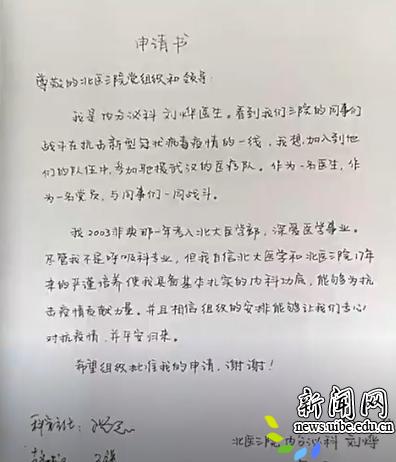 申请书
尊敬的北医三院党组织和领导:
我是内分泌科刘烨医生。看到我们三院的同事们
战斗在抗击新型冠状病毒疫情的一线,我想加入到他
们的队伍中,参加驰援武汉的医疗队。作为一名医生,作
为一名党员,与同事们一同战斗。
我2003非典那一年考入北大医学部,深爱医学事业。
尽管我不是呼吸科专业,但我自信北大医学和北医三院17年
来的严谨培养使我具备基本扎实的内科功底,能够为抗
击疫情贡献力量。并且相信组织的安排能够让我们专心
对抗疫情,并平安归来。
希望组织批准我的申请,谢谢!
科主任:
北医三院内分泌科 刘烨
新闻网
news.uibe.edu.cn